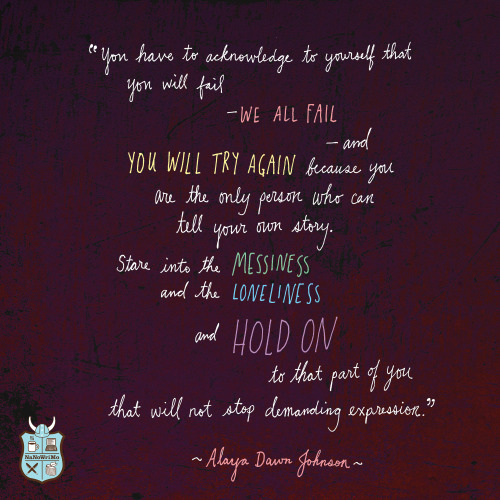 “You have to acknowledge to yourself that
you will fail
—WE ALL FAIL
— and
YOU WILL TRY AGAIN because you
are the only person who can
tell your own story.
Stare into the MESSINESS
and the LONELINESS
and HOLD ON
to that part of you
that will not stop demanding expression.”
~ Alaya Dawn Johnson ~
NaNoWriMo